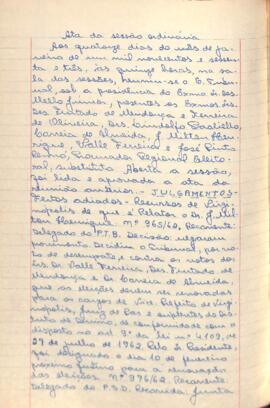 Ata da sessão ordinária
Aos quatorze dias do mês de ja-
neiro de um mil novecentos e sessen-
ta e três, às quinze horas, na sa-
la das sessões, reuniu-se o E. Tribu-
nal, sob a presidência do Exmo. Sr. Des.
Mello Junior, presentes os Exmos. Srs.
Des. Furtado de Mendonça e Ferreira
de Oliveira, Drs.
Correia de Almeida, J. Milton Hen-
rique, Valle Ferreira e José Pinto
Procurador Regional Eleito-
ral, substituto. Aberta a sessão,
foi lida e aprovada a ata da
reunião anterior. - JULGAMENTOS -
Feitos adiados - Recursos de Virgi-
nópolis de que é Relator o Dr. J. Mil-
ton Henrique. Nº 965/62. Recorrente:
Delegado do P.T.B. Decisão: negaram
provimento. Decidiu o Tribunal, por vo-
to de desempate, e contra os votos dos
Srs. Dr. Valle Ferreira, Des. Furtado de
Mendonça e Dr. Correia de Almeida,
que as eleições devem ser renovadas
para os cargos de Vice-Prefeito de Virgi-
nópolis, Juiz de Paz e suplentes do Dis-
trito de Divino, de conformidade com o
disposto no art. 3º da lei nº 4.109, de
27 de julho de 1962. Pelo Sr. Presidente,
foi designado o dia 10 de fevereiro
próximo futuro para a renovação
das eleições. Nº 976/62. Recorrente:
Delegado do P.S.D. Recorrida: Junta